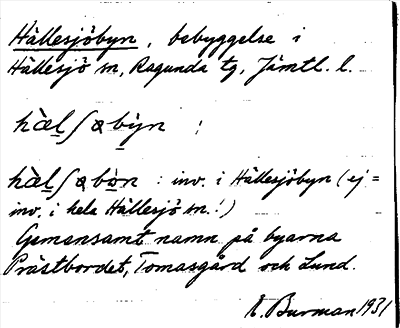 Hällesjöbyn, bebyggelse i
Hällesjö sn, Ragunda tg, Jämtl. l.
hὰl̲ʃɷbẏ̲n ;
hὰl̲ʃɷbȯ̲n : inv. i Hällesjöbyn (ej =
inv. i hela Hällesjö sn!)
Gemensamt namn på byarna
Prästbordet, Tomasgård och Lund.
K. Burman 1931